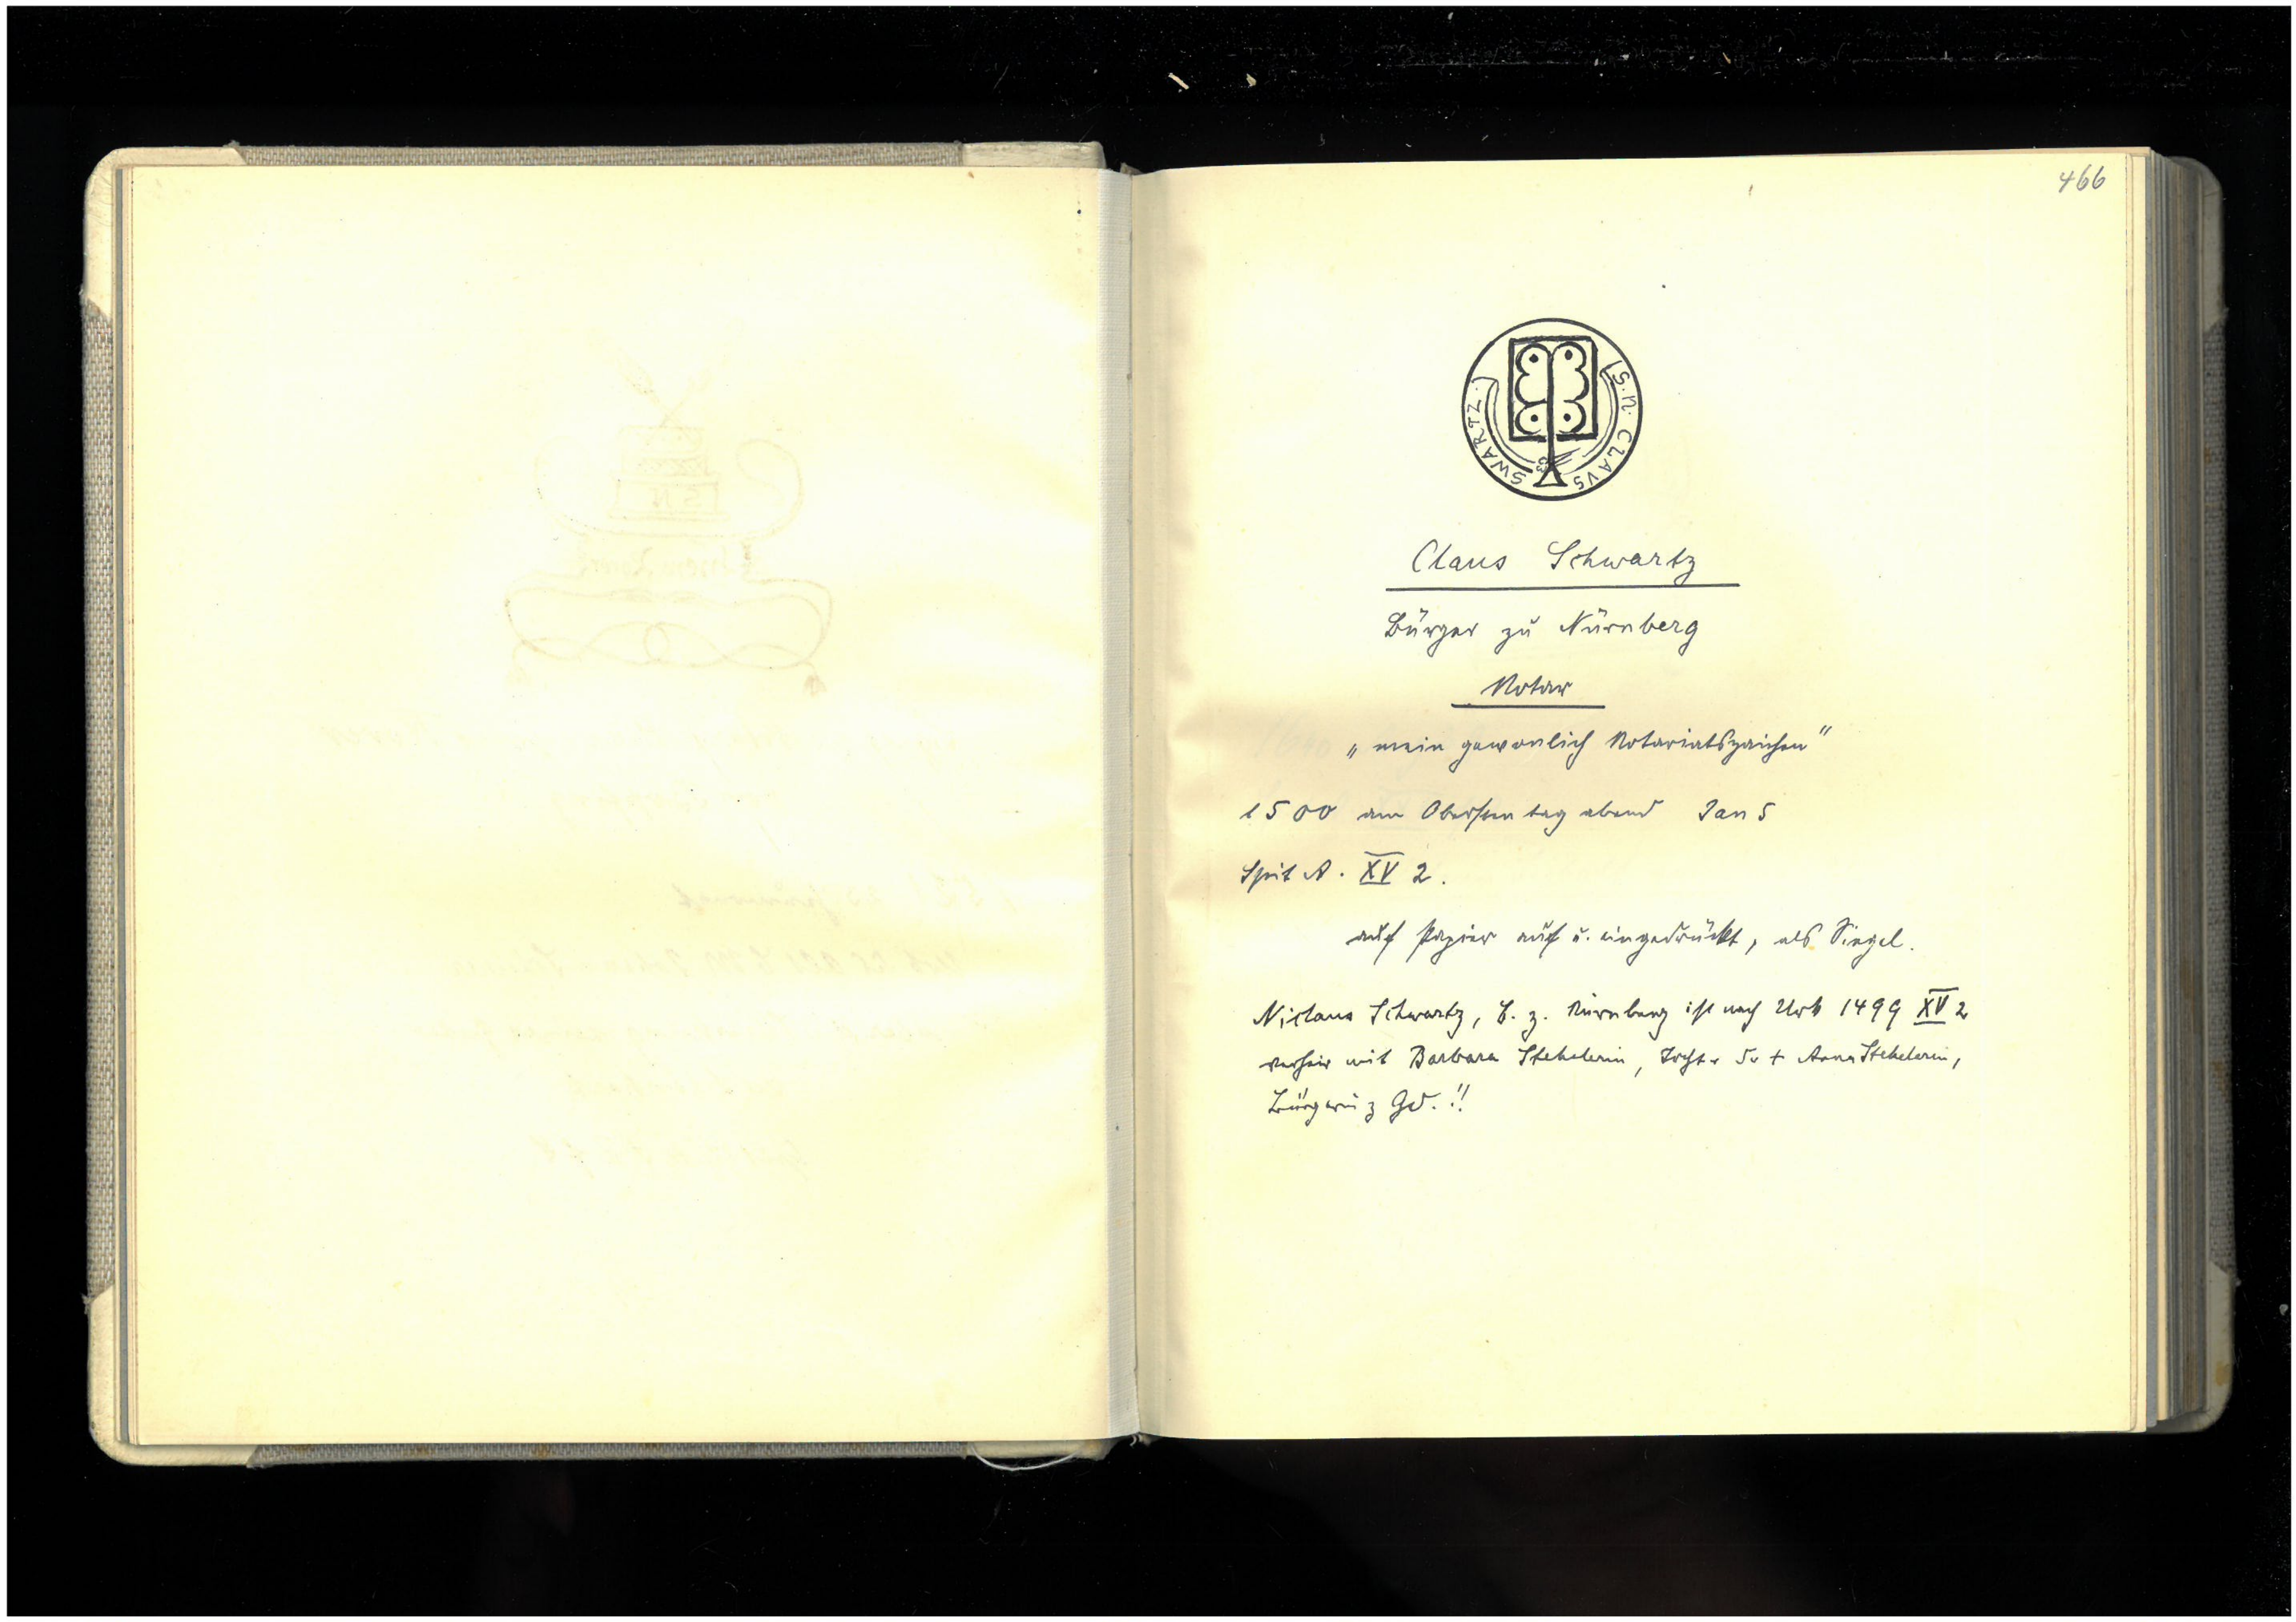 466
S. N. CLAVS SWARTZ.
Claus Schwartz
Bürger zu Nürnberg
Notar
„mein gewonlich Notariatszaichen"
1500 am Obersten tag abend Jan 5
Spit A. XV 2.
auf Papier auf u. eingedrückt, als Siegel.
Niclaus Schwartz, B. z. Nürnberg ist nach Urk 1499 XV 2
verheir mit Barbara Stekelerin, Tocht. d. † Anna Stekelerin,
Bürgerin z Gd. !!